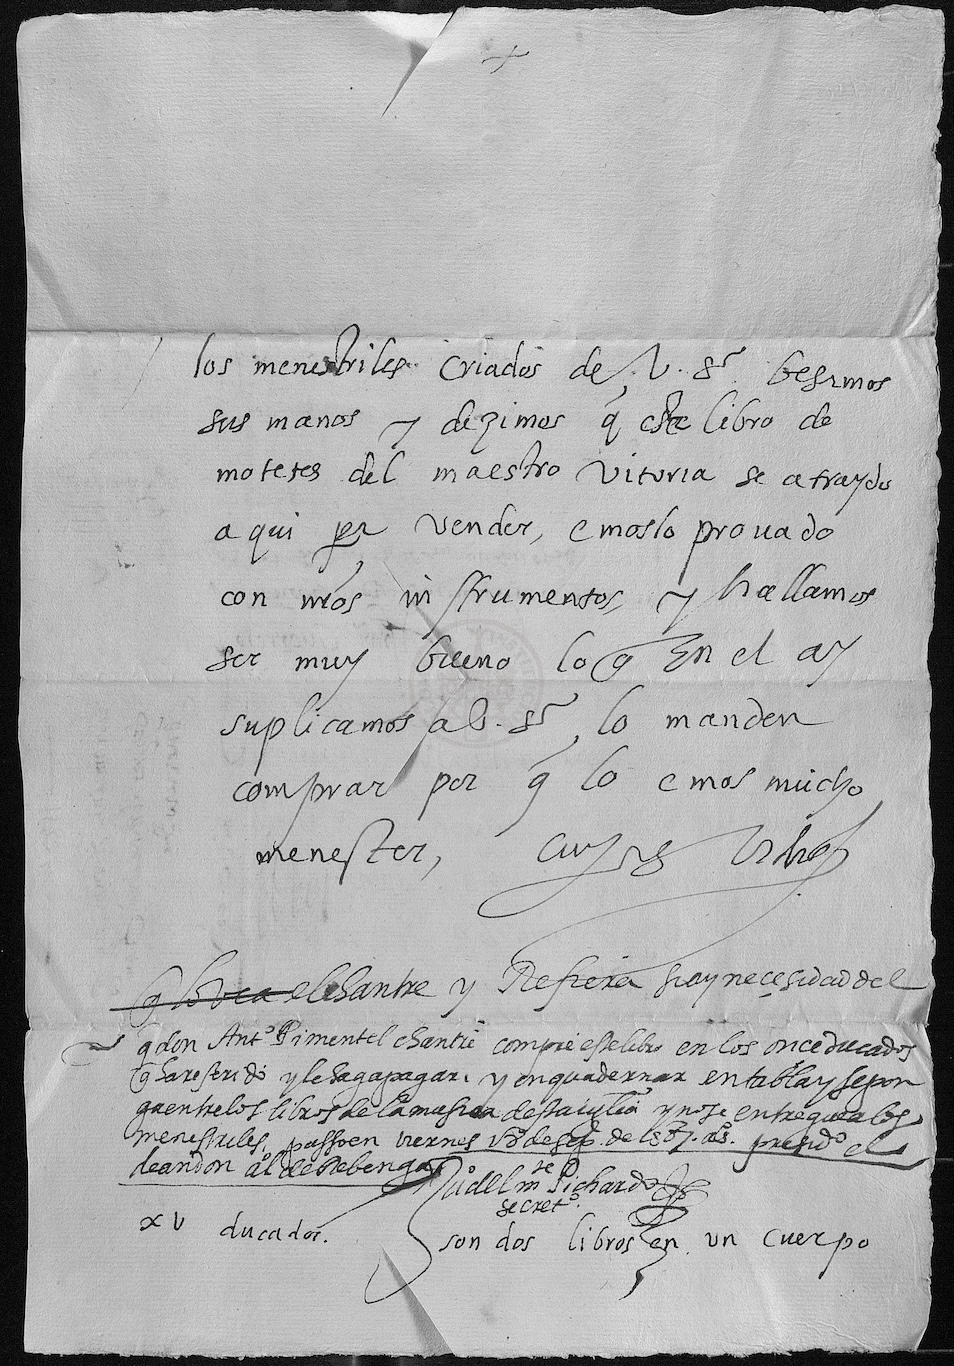 +
los menestriles criados de V. Sª. besamos
sus manos y dezimos q este libro de
motetes del maestro vitoria se a traydo
a qui pa vender, emoslo provado
con nros instrumentos, y hallamos
ser muy bueno lo q En el ay
suplicamos a V. Sª lo manden
comprar por q lo emos mucho
menester,
q lo vea el chantre y Refiera si ay necesidad del
q don Antº Pimentel chantre compre este libro en los once ducados
q ha referido y le haga pagar. y enquadernar en tabla y se pon
ga entre los libros de la musica desta iglia y no se entregue a los
menestriles, passo en viernes de sep. de 1587. aºs. presidº el
dean don al de Rebenga
Pichardo
secretº.
xv ducados.
son dos libros en un cuerpo